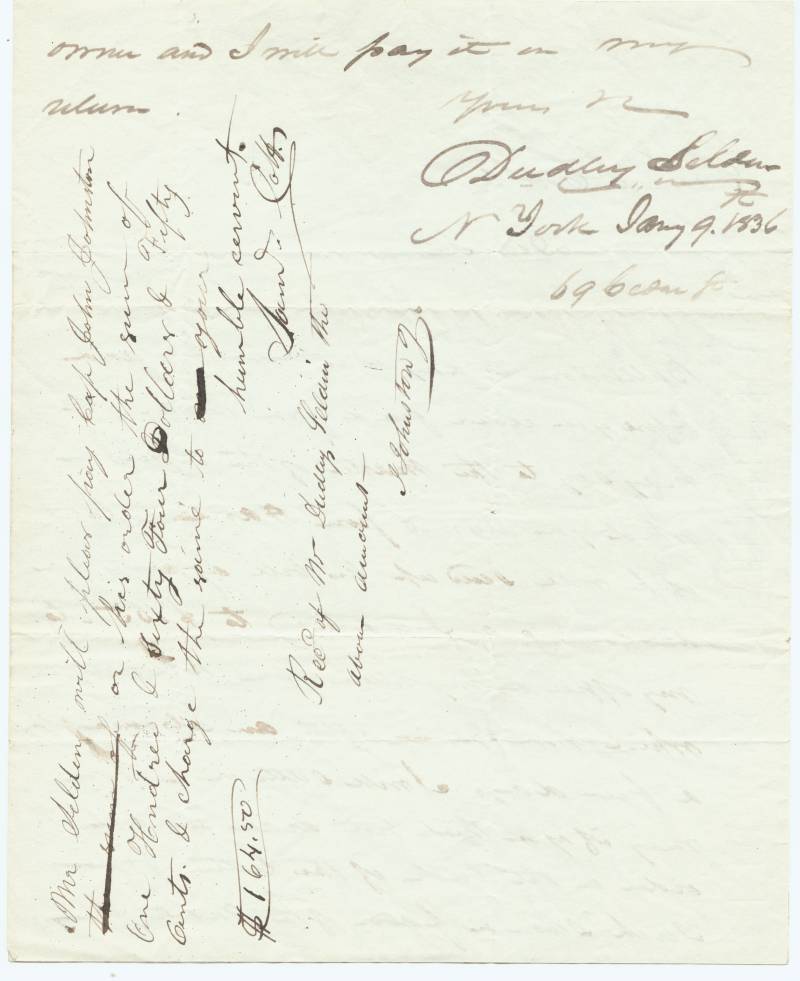 owner and I will pay it on my
return. Yours &c
Dudley Selden
N York Jany 9. 1836
69 Cedar St
Mr Selden will please pay Capt John Johnston
the sum of or his order the sum of
One Hundred & sixty Four Dollars & Fifty
Cents. & charge the same to your
humble servent.
Saml. Colt.
$164.50
Recd of Mr Dudley Seldin the
above amount
J Johnston